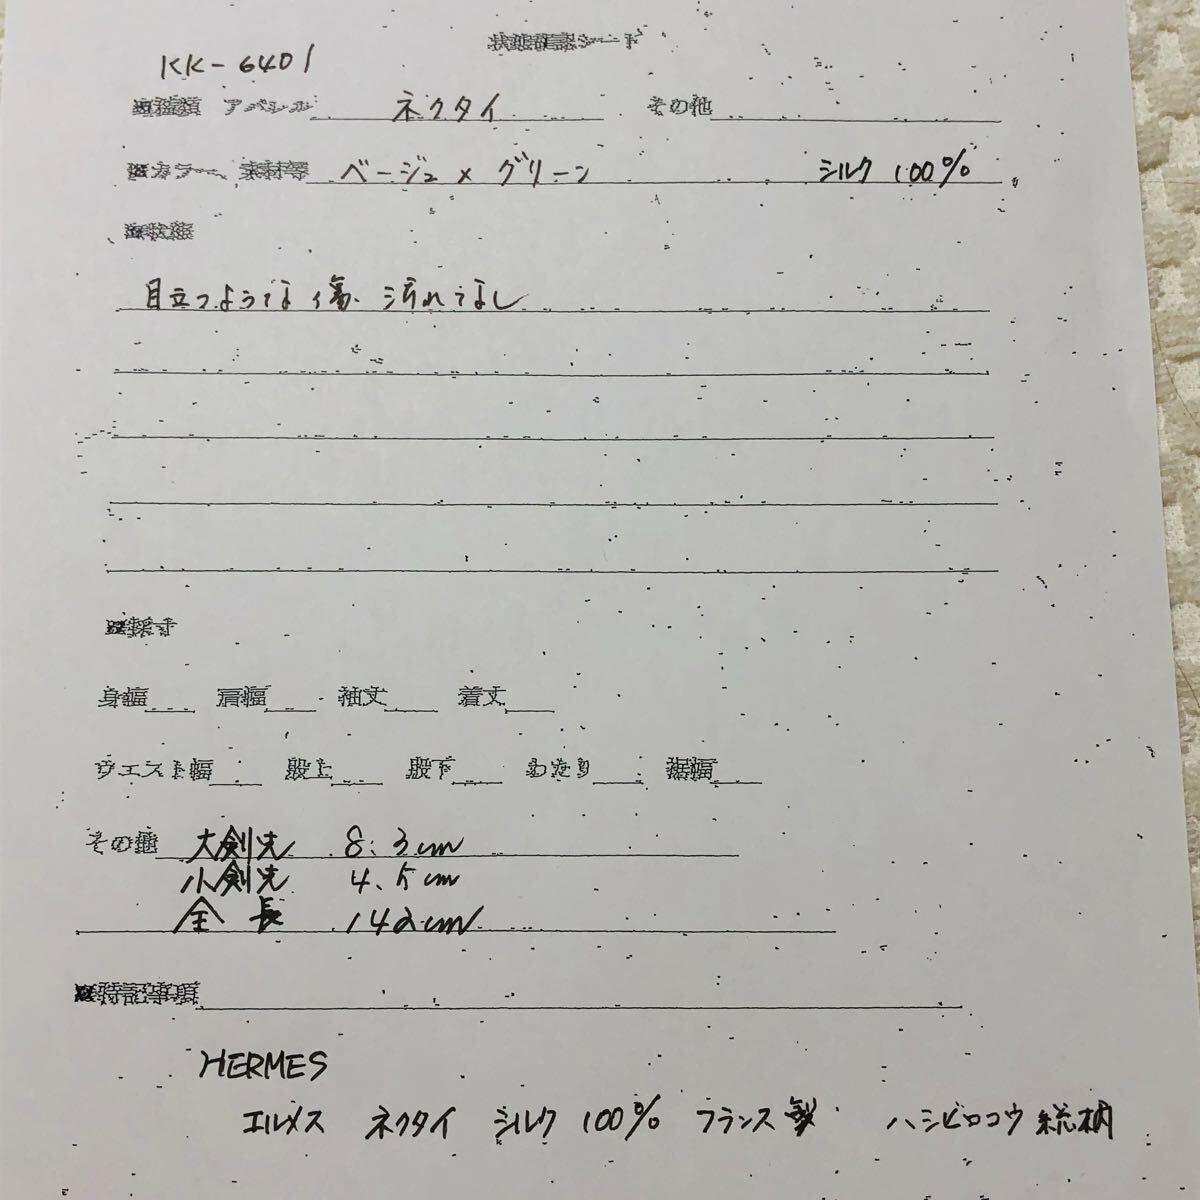 状態確認シート
KK-6401
※種類 アパレル ネクタイ その他
※カラー、素材等 ベージュ×グリーン シルク100%
※状態
目立つような傷、汚れてなし
※採寸
身幅 肩幅 袖丈 着丈
ウエスト幅 股上 股下 わたり 裾幅
その他 大剣先 8.3cm
小剣先 4.5cm
全長 142cm
※特記事項
HERMES
エルメス ネクタイ シルク100% フランス製 ハシビロコウ総柄